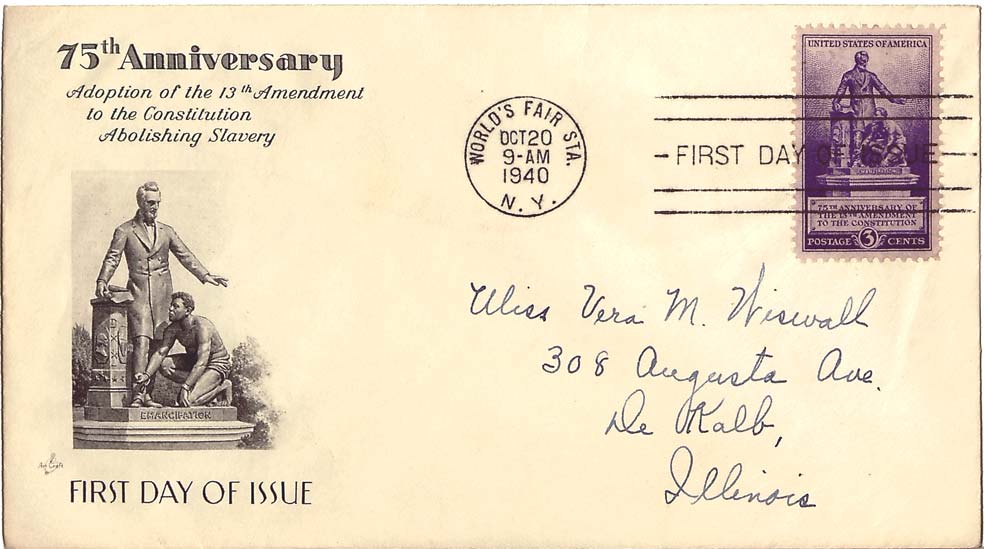 75th Anniversary
Adoption of the 13th Amendment
to the Constitution
Abolishing Slavery
EMANCIPATION
Art Craft
FIRST DAY OF ISSUE
WORLD'S FAIR STA.
OCT 20
9-AM
1940
N. Y.
FIRST DAY OF ISSUE
UNITED STATES OF AMERICA
75TH ANNIVERSARY OF
THE 13TH AMENDMENT
TO THE CONSTITUTION
POSTAGE 3 CENTS
Miss Vera M. Wiswall
308 Augusta Ave.
De Kalb,
Illinois